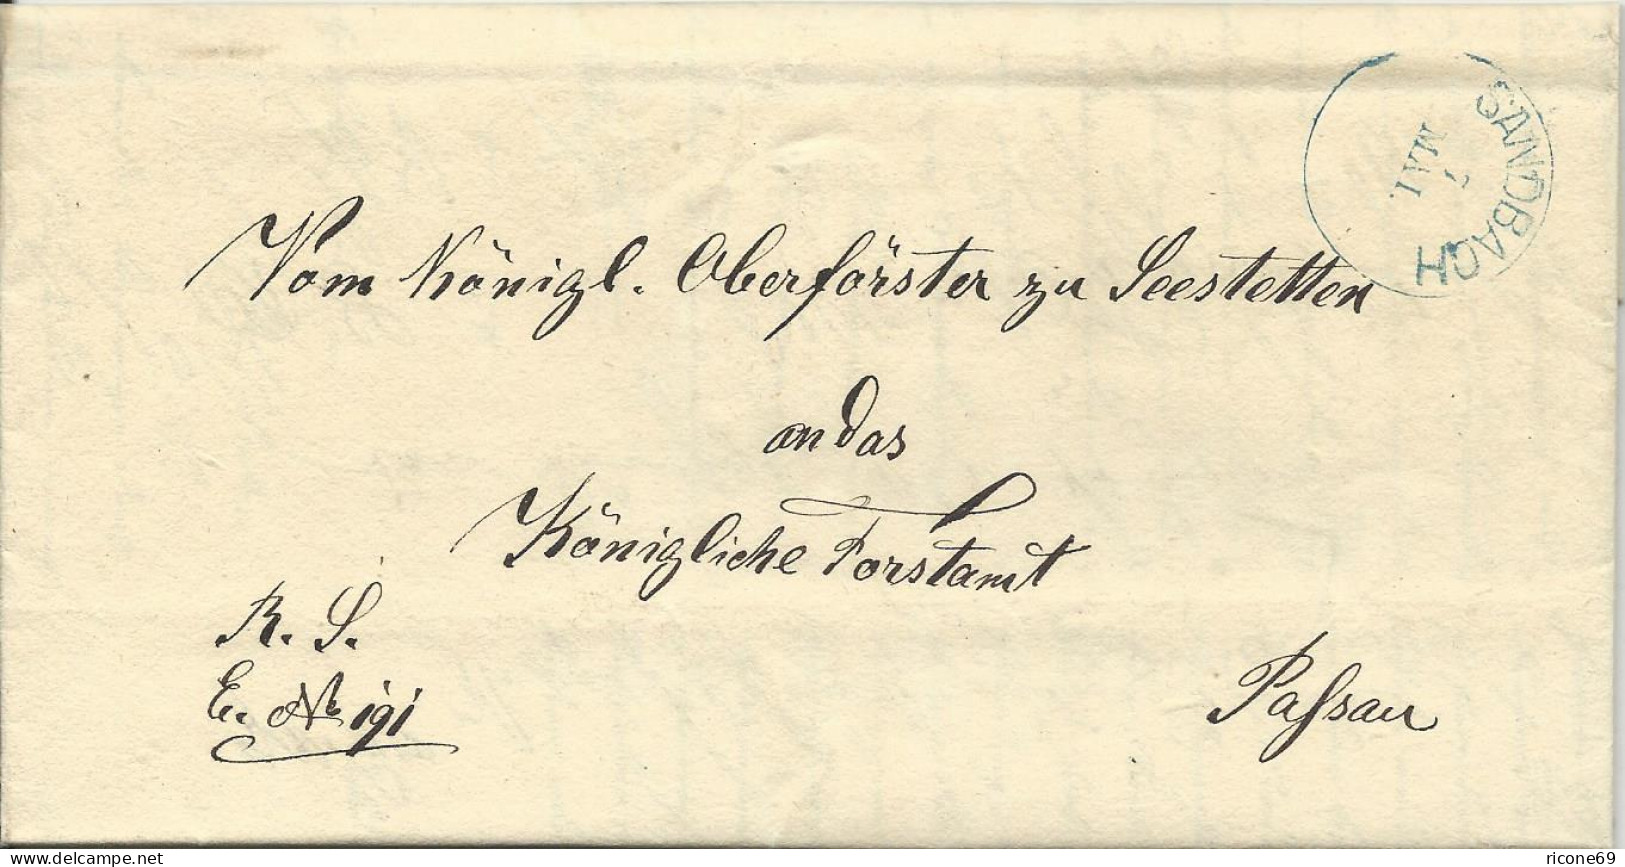 SANDBACH
7
MAI.
Vom Königl. Oberförster zu Seestetten
an das
Königliche Forstamt
R. S.
E. № 191
Paſsau
www.delcampe.net
ricone69